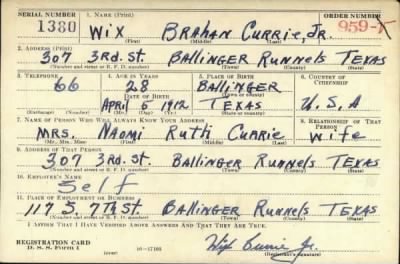 SERIAL NUMBER 1. NAME (Print) ORDER NUMBER
1380 WIX BRAHAN CURRIE, JR. 959-X
(First) (Middle) (Last)
2. ADDRESS (Print)
307 3RD. ST. BALLINGER RUNNELS TEXAS
(Number and street or R. F. D. number) (Town) (County) (State)
3. TELEPHONE 4. AGE IN YEARS 5. PLACE OF BIRTH 6. COUNTRY OF CITIZENSHIP
66 28 BALLINGER
DATE OF BIRTH (Town or county)
APRIL 5 1912 TEXAS U.S.A
(Exchange) (Number) (Mo.) (Day) (Yr.) (State or country)
7. NAME OF PERSON WHO WILL ALWAYS KNOW YOUR ADDRESS 8. RELATIONSHIP OF THAT PERSON
MRS. NAOMI RUTH CURRIE WIFE
(Mr., Mrs., Miss) (First) (Middle) (Last)
9. ADDRESS OF THAT PERSON
307 3RD. ST. BALLINGER RUNNELS TEXAS
(Number and street or R. F. D. number) (Town) (County) (State)
10. EMPLOYER'S NAME
SELF
11. PLACE OF EMPLOYMENT OR BUSINESS
117 S. 7TH ST. BALLINGER RUNNELS TEXAS
(Number and street or R. F. D. number) (Town) (County) (State)
I AFFIRM THAT I HAVE VERIFIED ABOVE ANSWERS AND THAT THEY ARE TRUE.
REGISTRATION CARD
D. S. S. Form 1 (over) Wix Currie Jr.
(Registrant's signature)